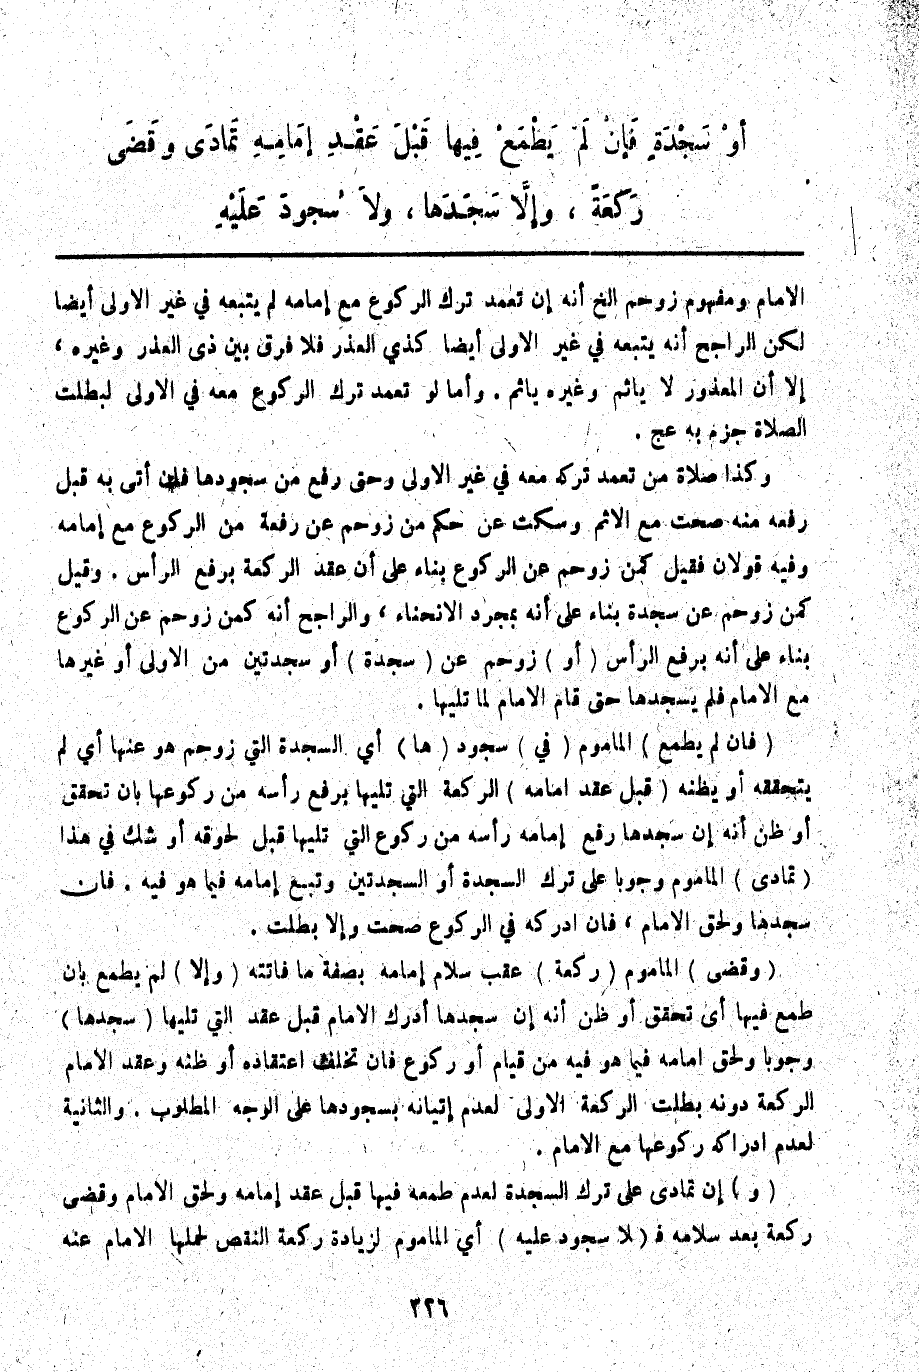 أَوْ سَجْدَةٍ فَإِنْ لَمْ يَطْمَعْ فِيها قَبْلَ عَقْدِ إِمَامِهِ تَمَادَى وَقَضَى
رَكْعَةً ، وإِلَّا سَجَدَها ، ولاَ سُجودَ عَلَيْهِ
الامام ومفهوم زوحم الخ أنه إن تعمد ترك الركوع مع إمامه لم يتبعه في غير الاولى أيضا
لكن الراجح أنه يتبعه في غير الاولى أيضا كذي العذر فلا فرق بين ذى العذر وغيره ،
إلا أن المعذور لا يأثم وغيره يأثم . وأما لو تعمد ترك الركوع معه في الاولى لبطلت
الصلاة جزم به عج .
وكذا صلاة من تعمد تركه معه في غير الاولى وحتى رفع من سجودها فإن أتى به قبل
رفعه منه صحت مع الاثم وسكت عن حكم من زوحم عن رفعة من الركوع مع إمامه
وفيه قولان فقيل كمن زوحم عن الركوع بناء على أن عقد الركعة برفع الرأس . وقيل
كمن زوحم عن سجدة بناء على أنه بمجرد الانحناء ، والراجح أنه كمن زوحم عن الركوع
بناء على أنه برفع الرأس ( أو ) زوحم عن ( سجدة ) أو سجدتين من الاولى أو غيرها
مع الامام فلم يسجدها حتى قام الامام لما تليها .
( فان لم يطمع ) المأموم ( في ) سجود ( ها ) أي السجدة التي زوحم هو عنها أي لم
يتحققه أو يظنه ( قبل عقد امامه ) الركعة التي تليها برفع رأسه من ركوعها بان تحقق
أو ظن أنه إن سجدها رفع إمامه رأسه من ركوع التي تليها قبل لحوقه أو شك في هذا
( تمادى ) المأموم وجوبا على ترك السجدة أو السجدتين وتبع إمامه فيما هو فيه . فان
سجدها ولحق الامام ، فان ادركه في الركوع صحت وإلا بطلت .
( وقضى ) المأموم ( ركعة ) عقب سلام إمامه بصفة ما فاتته ( وإلا ) لم يطمع بان
طمع فيها أى تحقق أو ظن أنه إن سجدها أدرك الامام قبل عقد التي تليها ( سجدها )
وجوبا ولحق امامه فيما هو فيه من قيام أو ركوع فان تخلف اعتقاده أو ظنه وعقد الامام
الركعة دونه بطلت الركعة الاولى لعدم إتيانه بسجودها على الوجه المطلوب . والثانية
لعدم ادراكه ركوعها مع الامام .
( و ) إن تمادى على ترك السجدة لعدم طمعه فيها قبل عقد إمامه ولحق الامام وقضى
ركعة بعد سلامه فـ ( لا سجود عليه ) أي المأموم لزيادة ركعة النقص لحملها الامام عنه
٣٢٦